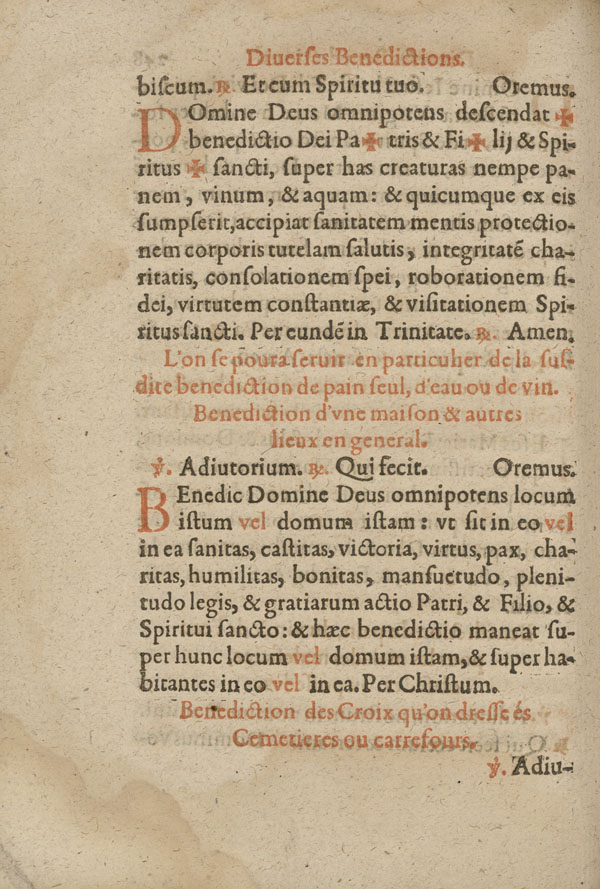 Diuerses Benedictions.
biscum. ℟. Et cum Spiritu tuo. Oremus.
DOmine Deus omnipotens deſcendat ✠
benedictio Dei Pa ✠ tris & Fi ✠ lij & Spi-
ritus ✠ ſancti, ſuper has creaturas nempe pa-
nem, vinum, & aquam: & quicumque ex eis
ſumpſerit, accipiat ſanitatem mentis protectio-
nem corporis tutelam ſalutis, integritatē cha-
ritatis, conſolationem ſpei, roborationem fi-
dei, virtutem conſtantiæ, & viſitationem Spi-
ritus ſancti. Per eundē in Trinitate. ℟. Amen.
L'on se poura ſeruir en particulier de la ſuſ-
dite benediction de pain ſeul, d'eau ou de vin.
Benediction d'vne maiſon & autres
lieux en general.
℣. Adiutorium. ℟. Qui fecit. Oremus.
BEnedic Domine Deus omnipotens locum
iſtum vel domum iſtam: vt ſit in eo vel
in ea ſanitas, caſtitas, victoria, virtus, pax, cha-
ritas, humilitas, bonitas, manſuetudo, pleni-
tudo legis, & gratiarum actio Patri, & Filio, &
Spiritui ſancto: & hæc benedictio maneat ſu-
per hunc locum vel domum iſtam, & ſuper ha-
bitantes in eo vel in ea. Per Chriſtum.
Benediction des Croix qu'on dreſſe és
Cemetieres ou carrefours.
℣. Adiu-